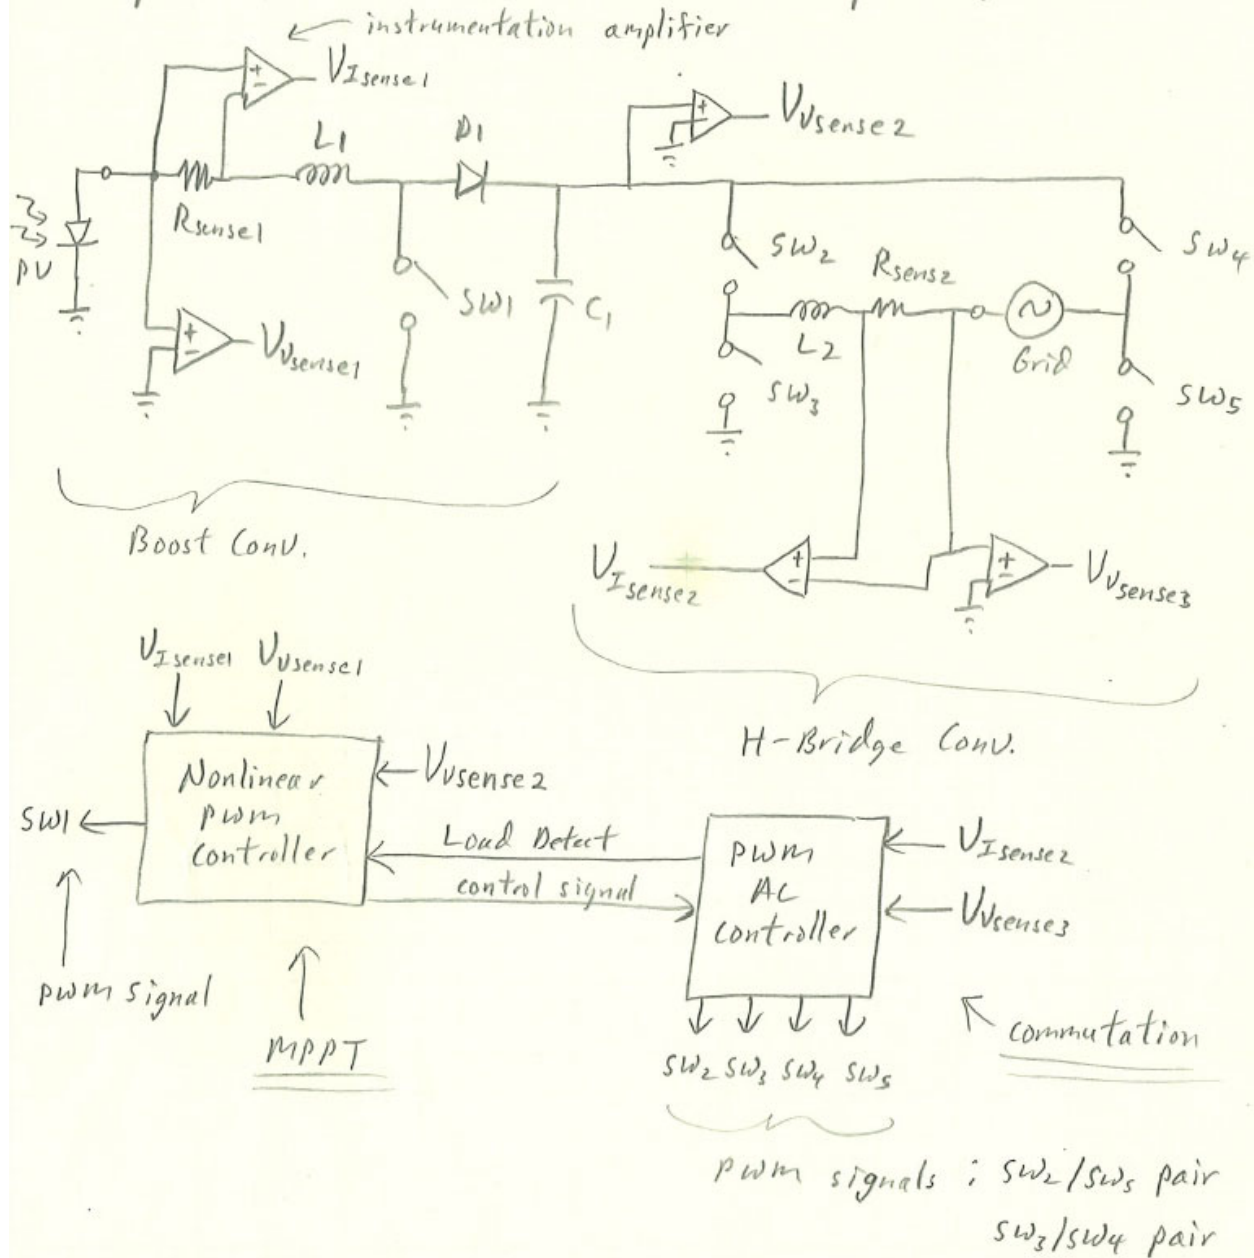 instrumentation amplifier
VIsense1
VVsense2
L1
D1
Rsense1
PV
SW1
C1
VVsense1
SW2
Rsens2
SW4
L2
Grid
SW3
SW5
Boost Conv.
VIsense2
VVsense3
H-Bridge Conv.
VIsense1 VVsense1
Nonlinear
PWM
Controller
VVsense2
SW1
Load Detect
control signal
PWM
AC
Controller
VIsense2
VVsense3
pwm signal
MPPT
commutation
SW2 SW3 SW4 SW5
pwm signals : SW2/SW5 pair
SW3/SW4 pair